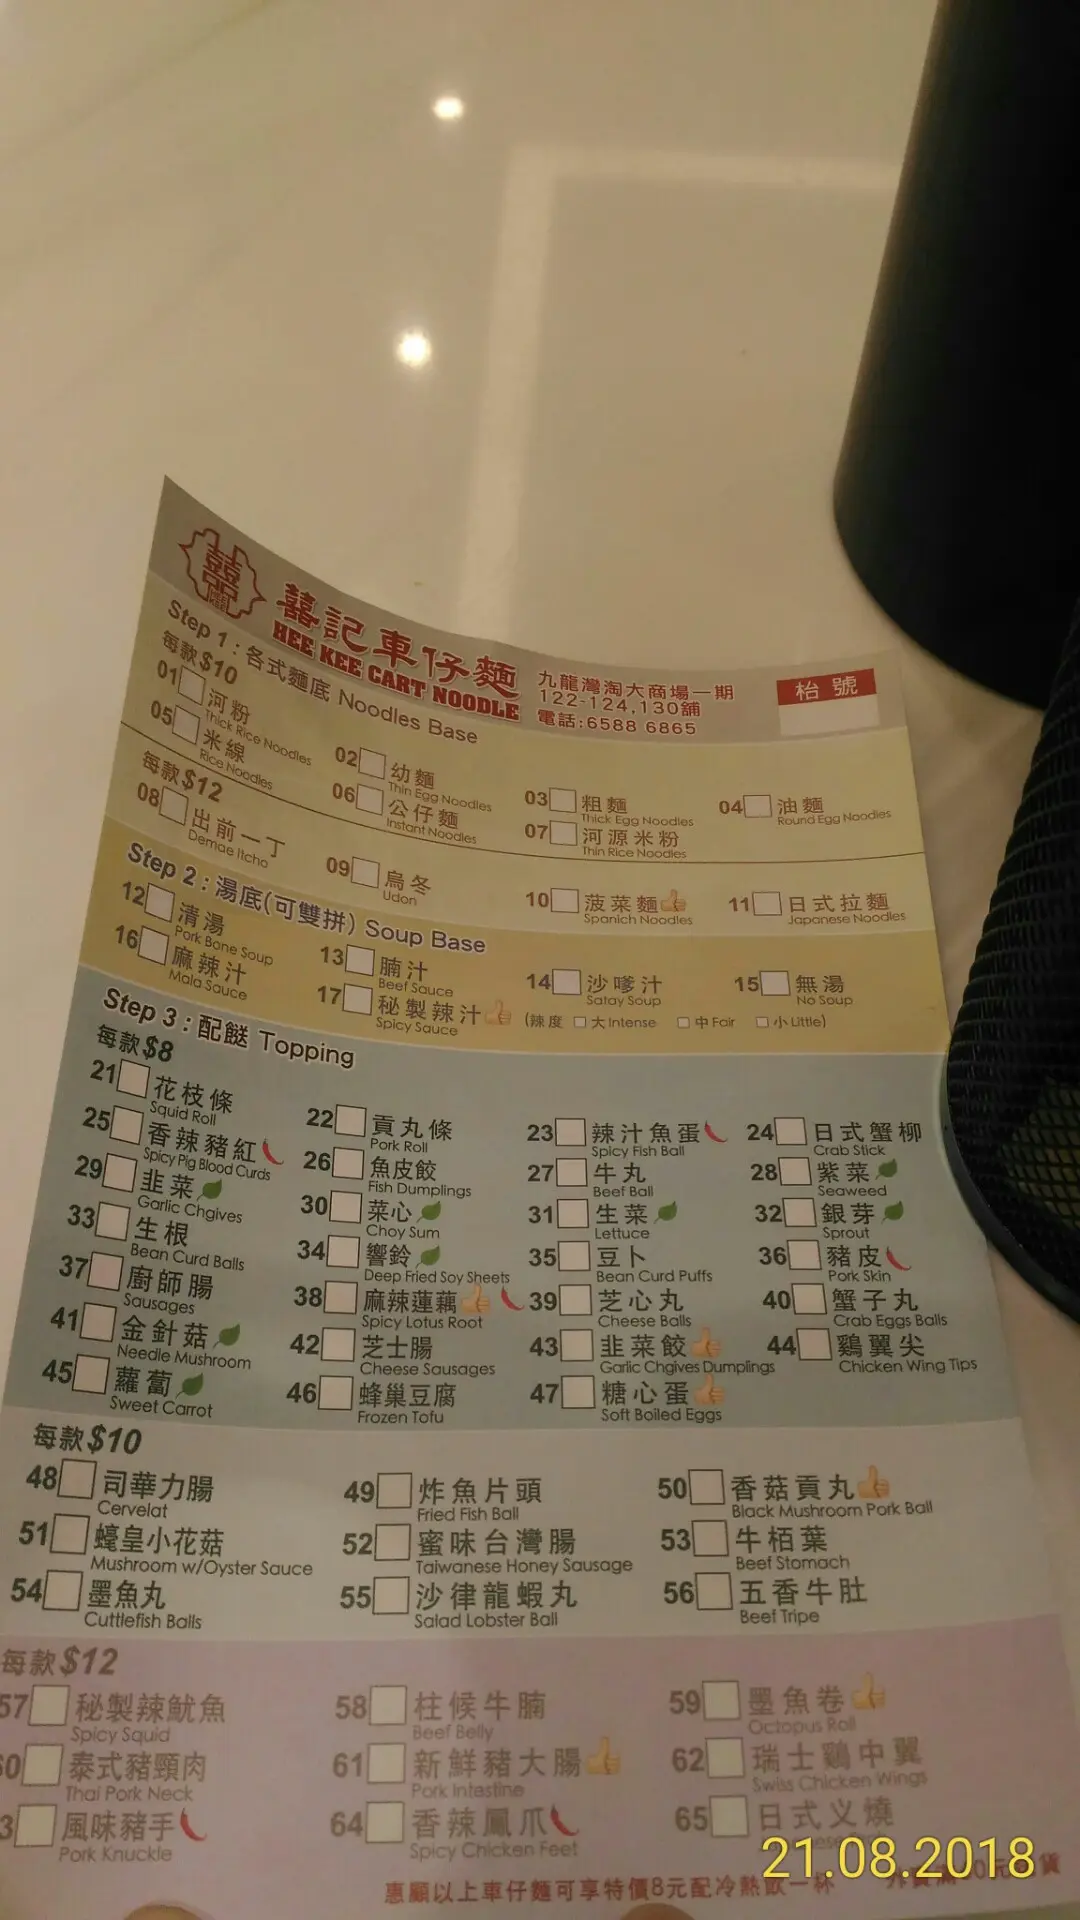 囍記車仔麵
HEE KEE CART NOODLE
九龍灣淘大商場一期
122-124,130舖
電話:6588 6865
枱號
Step 1 : 各式麵底 Noodles Base
每款$10
01 河粉 Thick Rice Noodles
02 幼麵 Thin Egg Noodles
03 粗麵 Thick Egg Noodles
04 油麵 Round Egg Noodles
05 米線 Rice Noodles
06 公仔麵 Instant Noodles
07 河源米粉 Thin Rice Noodles
每款$12
08 出前一丁 Demae Itcho
09 烏冬 Udon
10 菠菜麵 Spanich Noodles
11 日式拉麵 Japanese Noodles
Step 2 : 湯底(可雙拼) Soup Base
12 清湯 Pork Bone Soup
13 腩汁 Beef Sauce
14 沙嗲汁 Satay Soup
15 無湯 No Soup
16 麻辣汁 Mala Sauce
17 秘製辣汁 Spicy Sauce
(辣度 大 Intense 中 Fair 小 Little)
Step 3 : 配餸 Topping
每款$8
21 花枝條 Squid Roll
22 貢丸條 Pork Roll
23 辣汁魚蛋 Spicy Fish Ball
24 日式蟹柳 Crab Stick
25 香辣豬紅 Spicy Pig Blood Curds
26 魚皮餃 Fish Dumplings
27 牛丸 Beef Ball
28 紫菜 Seaweed
29 韭菜 Garlic Chgives
30 菜心 Choy Sum
31 生菜 Lettuce
32 銀芽 Sprout
33 生根 Bean Curd Balls
34 響鈴 Deep Fried Soy Sheets
35 豆卜 Bean Curd Puffs
36 豬皮 Pork Skin
37 廚師腸 Sausages
38 麻辣蓮藕 Spicy Lotus Root
39 芝心丸 Cheese Balls
40 蟹子丸 Crab Eggs Balls
41 金針菇 Needle Mushroom
42 芝士腸 Cheese Sausages
43 韭菜餃 Garlic Chgives Dumplings
44 鷄翼尖 Chicken Wing Tips
45 蘿蔔 Sweet Carrot
46 蜂巢豆腐 Frozen Tofu
47 糖心蛋 Soft Boiled Eggs
每款$10
48 司華力腸 Cervelat
49 炸魚片頭 Fried Fish Ball
50 香菇貢丸 Black Mushroom Pork Ball
51 蠔皇小花菇 Mushroom w/Oyster Sauce
52 蜜味台灣腸 Taiwanese Honey Sausage
53 牛栢葉 Beef Stomach
54 墨魚丸 Cuttlefish Balls
55 沙律龍蝦丸 Salad Lobster Ball
56 五香牛肚 Beef Tripe
每款$12
57 秘製辣魷魚 Spicy Squid
58 柱候牛腩 Beef Belly
59 墨魚卷 Octopus Roll
60 泰式豬頸肉 Thai Pork Neck
61 新鮮豬大腸 Pork Intestine
62 瑞士鷄中翼 Swiss Chicken Wings
3 風味豬手 Pork Knuckle
64 香辣鳳爪 Spicy Chicken Feet
65 日式义燒
惠顧以上車仔麵可享特價8元配冷熱飲一杯
21.08.2018